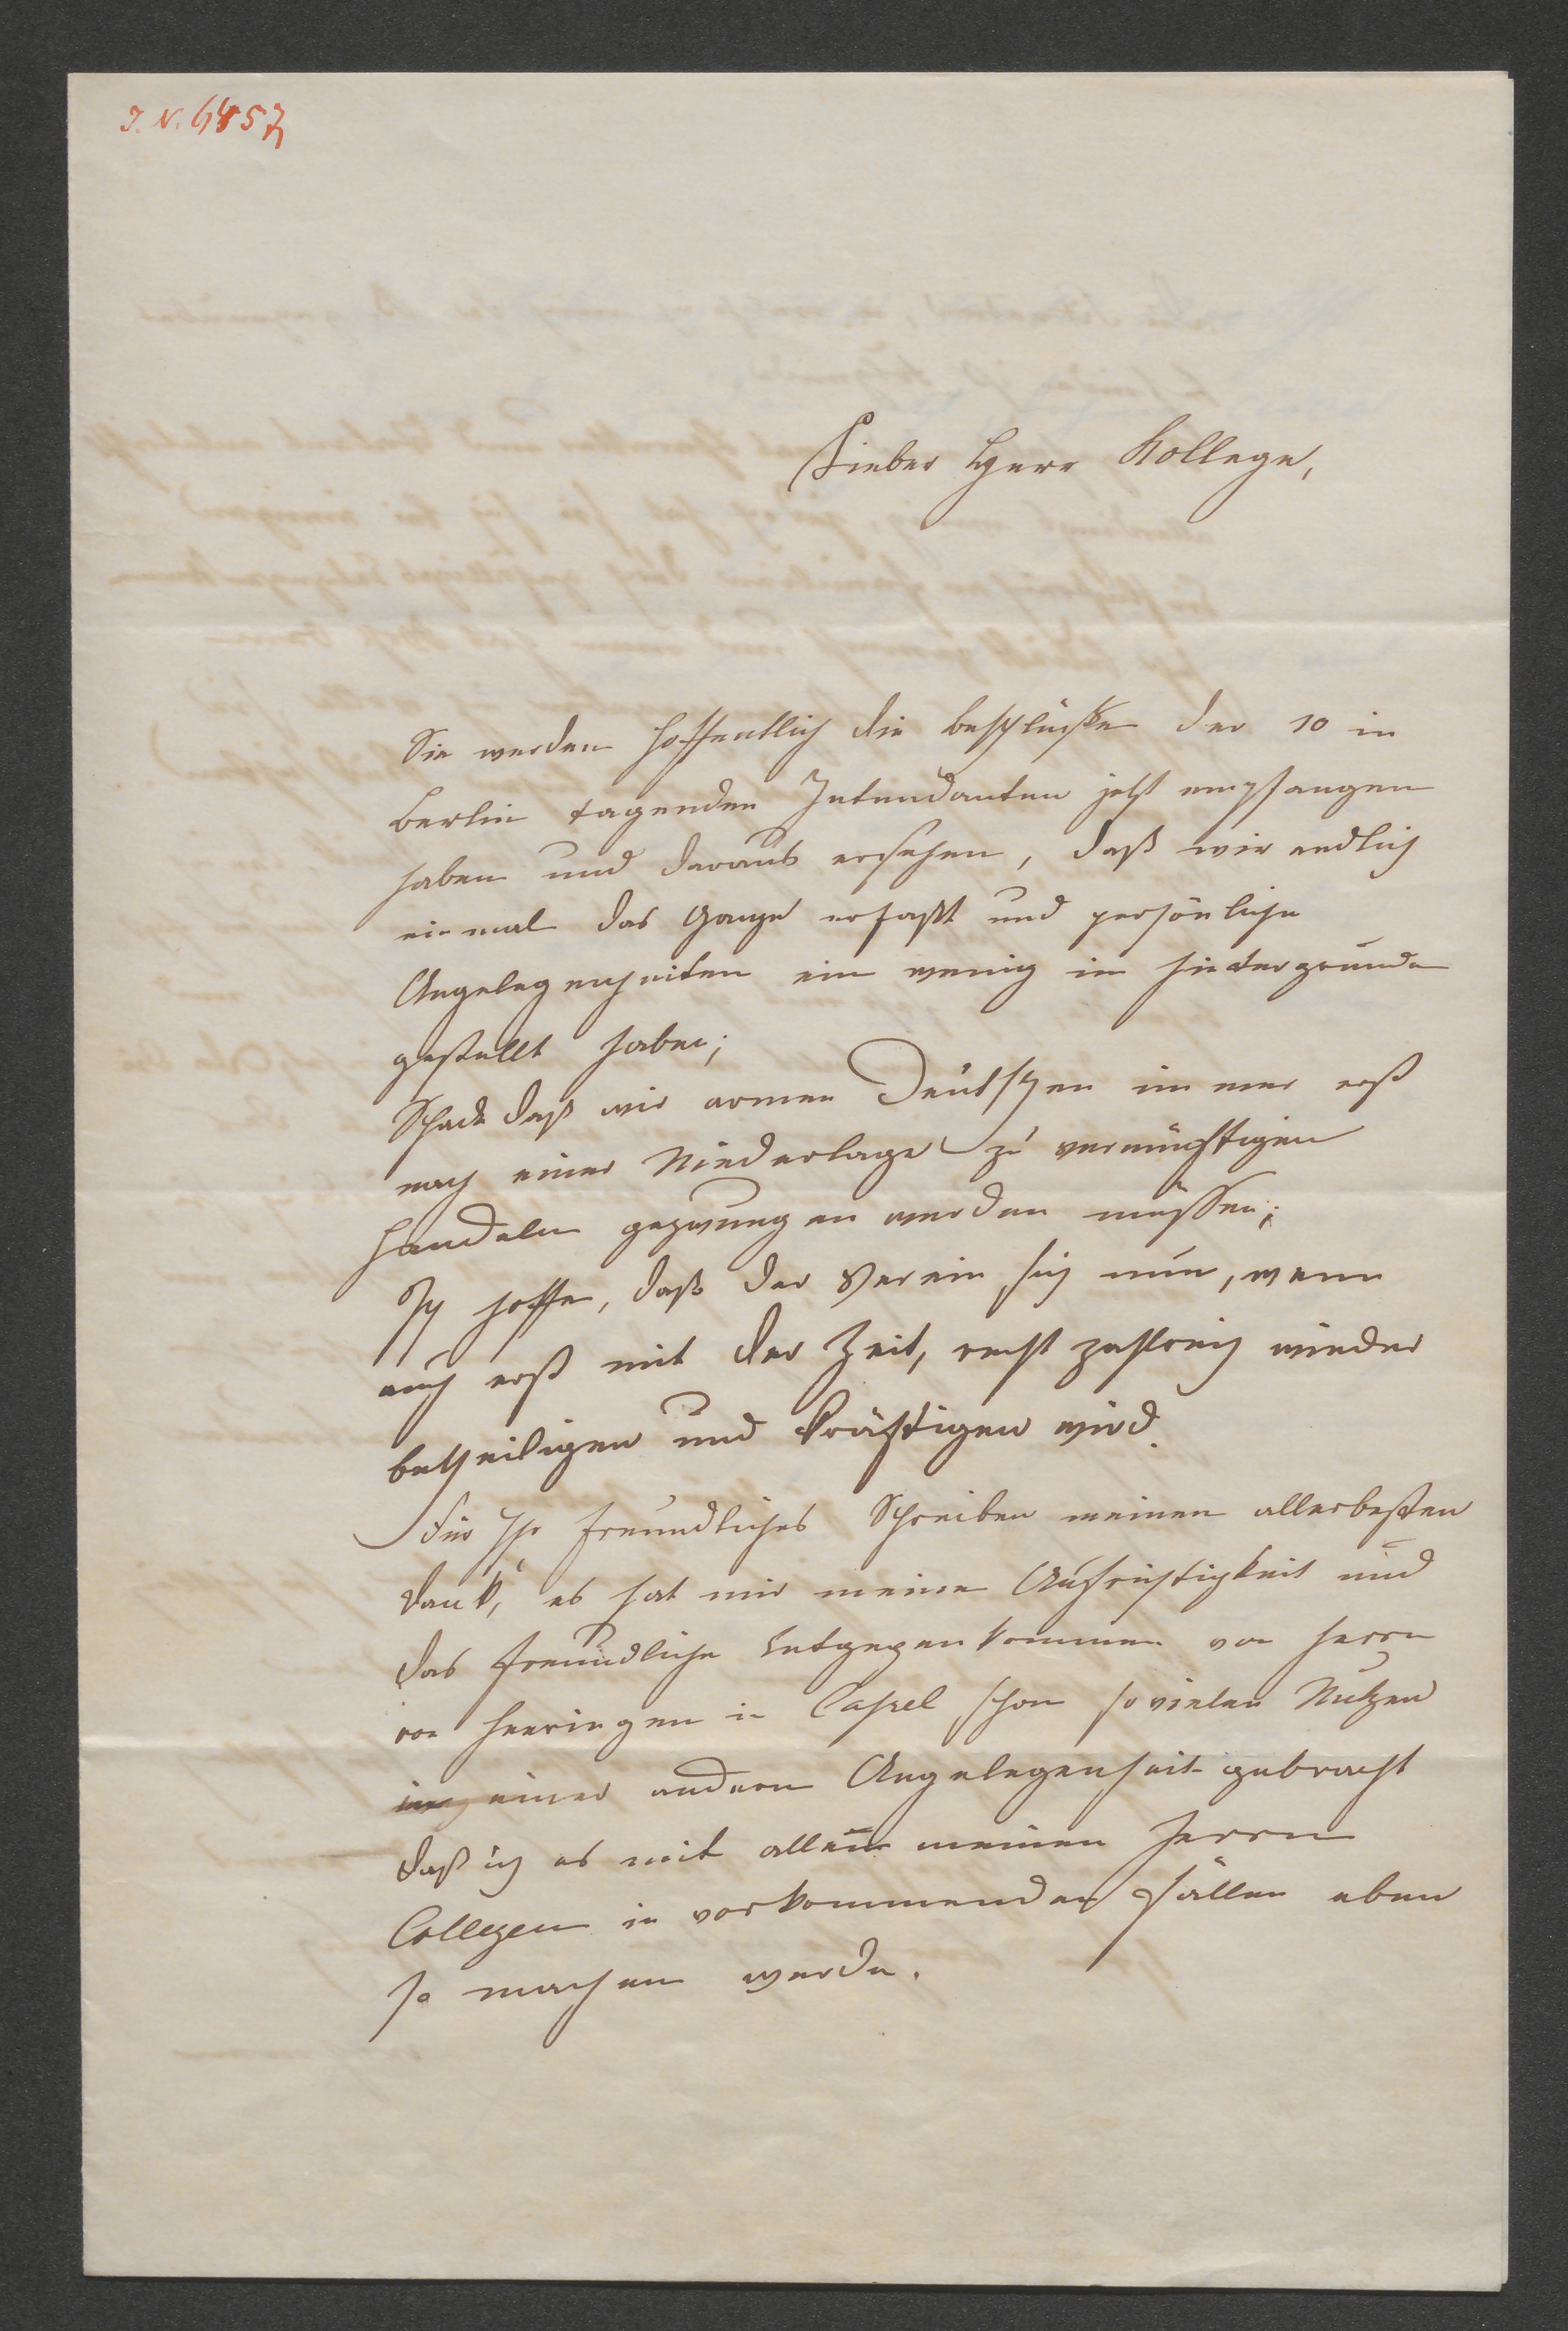 J. N. 6457
Lieber Herr Kollege,
Sie werden hoffentlich die beschlüße der 10 in
Berlin tagenden Intendanten jetzt empfangen
haben und daraus ersehen, daß wir endlich
einmal das Ganze erfaßt und persönliche
Angelegenheiten ein wenig im hintergrunde
gestellt haben;
Schade daß wir armen Deutschen immer erst
nach einer Niederlage zu vernünftigen
handeln gezwungen werden müssen;
Ich hoffe, daß der Verein sich nun, wenn
auch erst mit der Zeit, recht zahlreich wieder
betheiligen und kräftigen wird.
Für Ihr freundliches Schreiben meinen allerbesten
dank, es hat mir meine Aufrichtigkeit und
das freundliche Entgegenkommen von Herrn
von Heeringen in Cassel schon so vielen Nutzen
in einer andern Angelegenheit gebracht
daß ich es mit allen meinen Herrn
Collegen in vorkommenden Fällen eben
so machen werde.